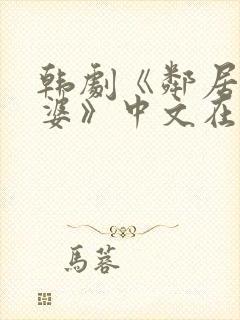 韩劇《鄰居
婆》中文在
馬蓉